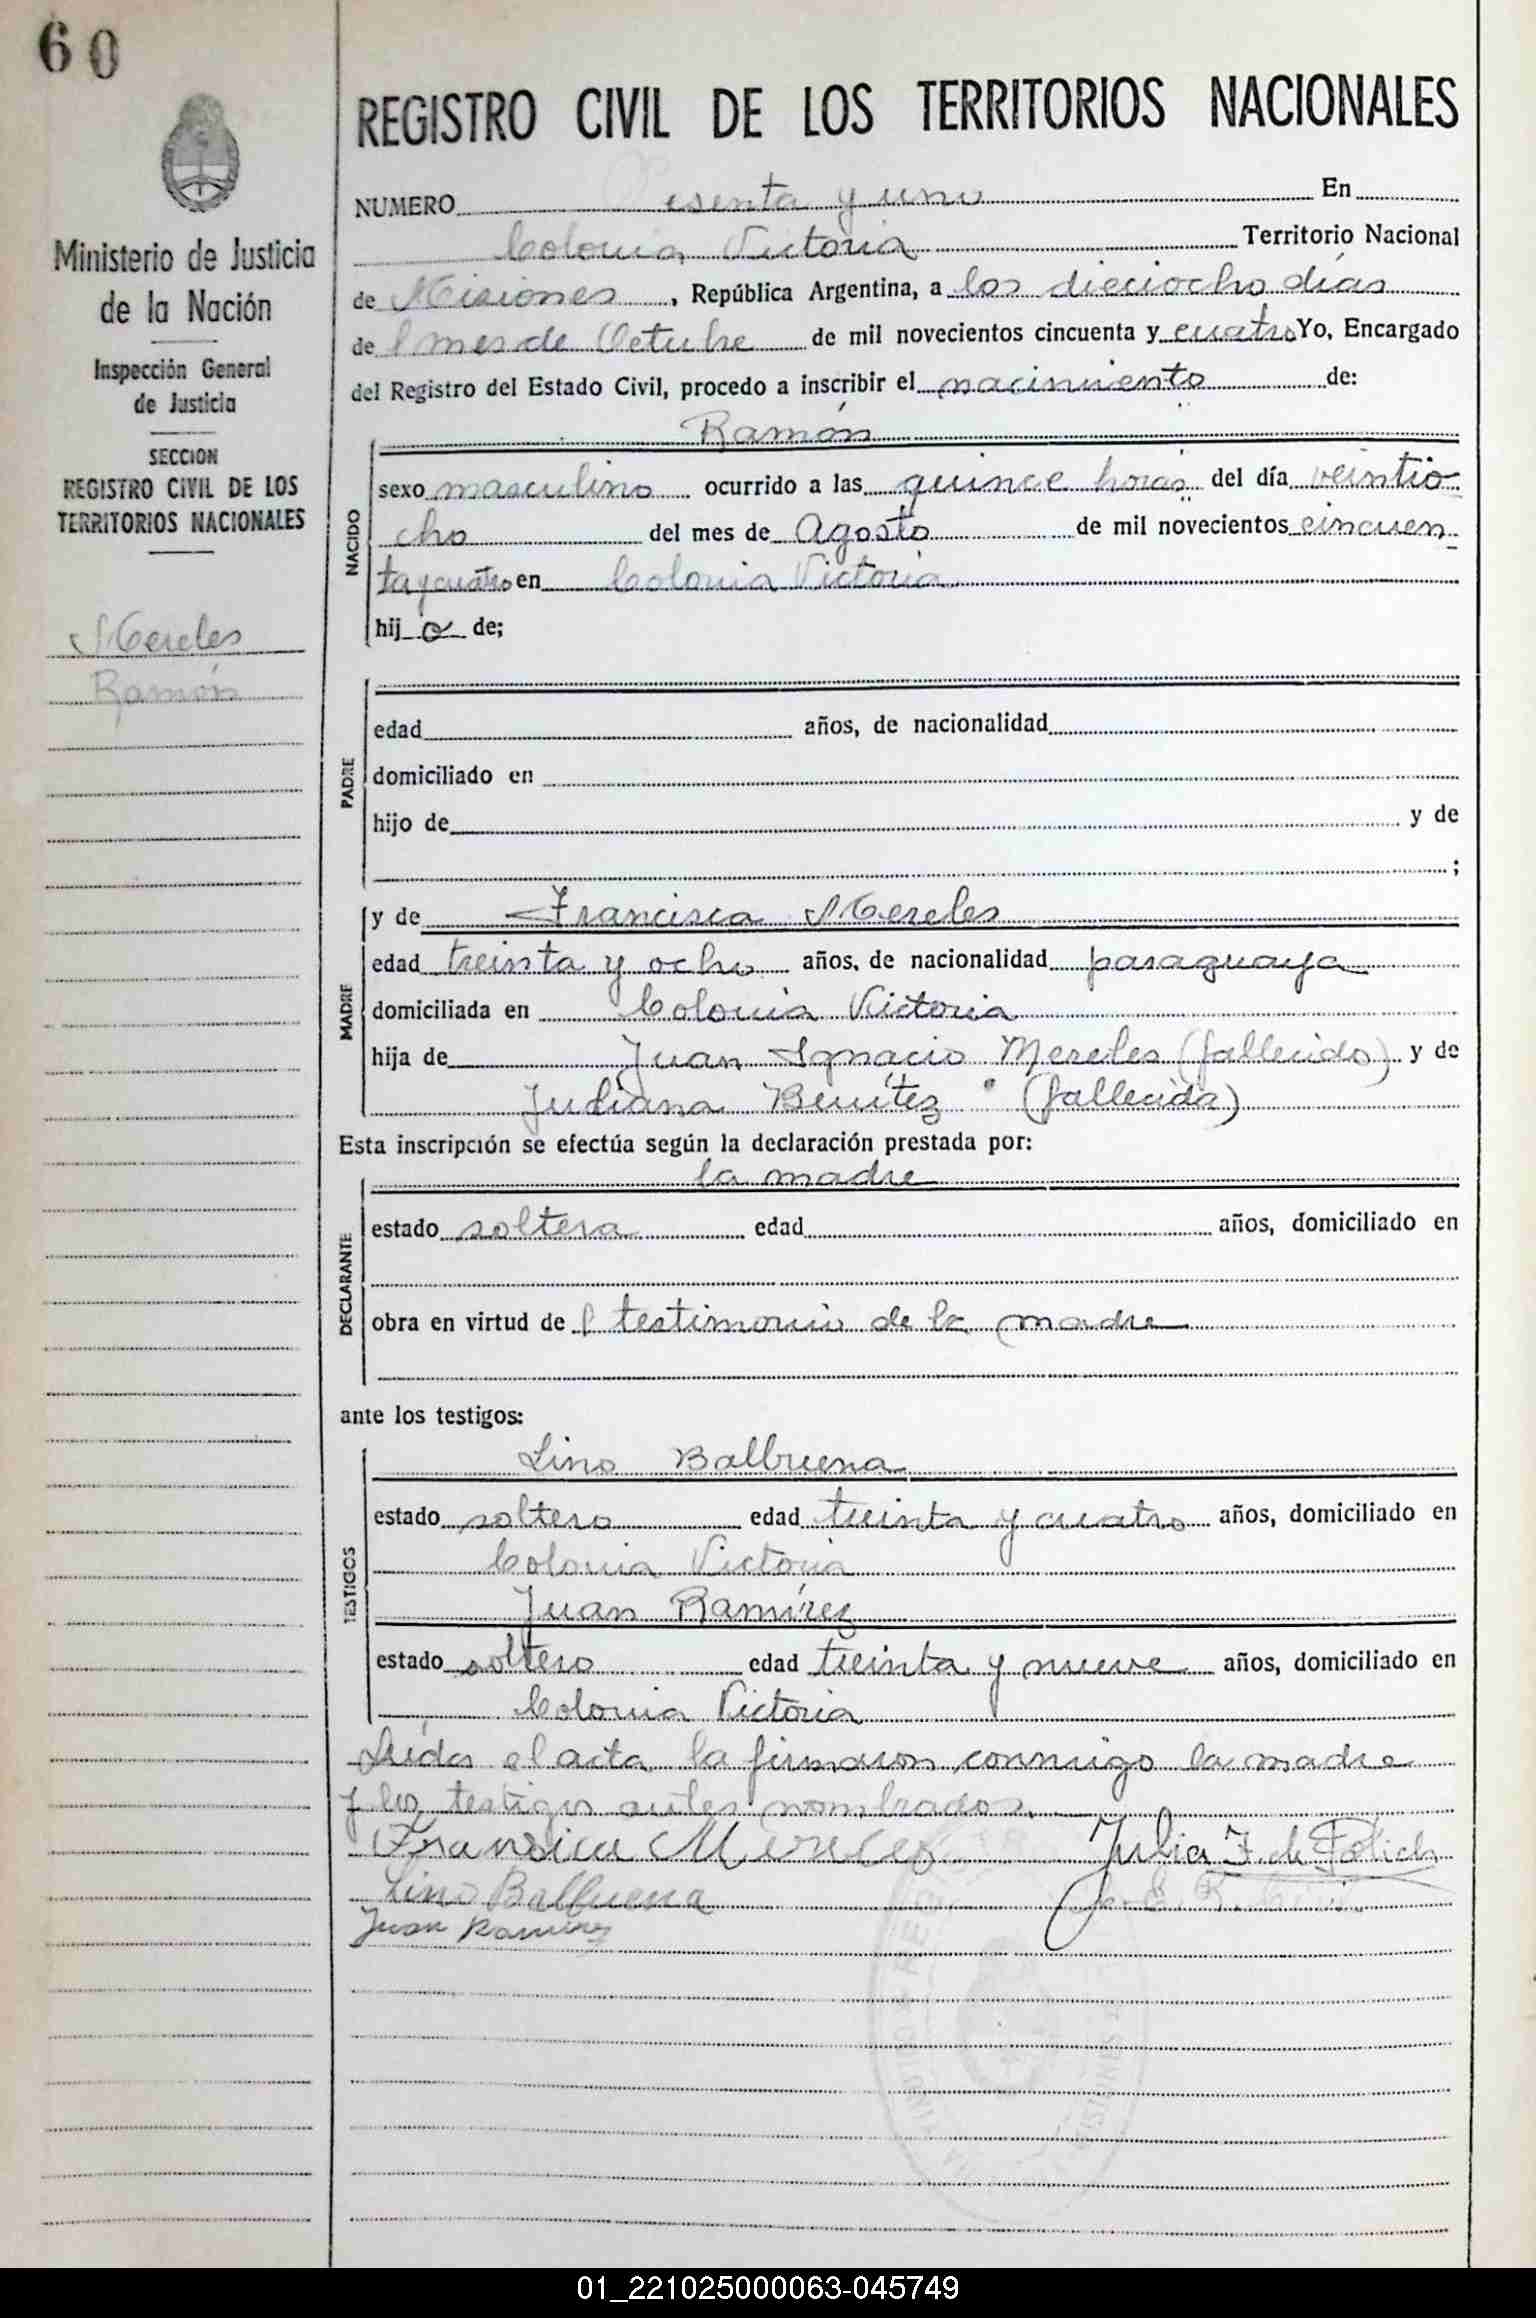 60
Ministerio de Justicia
de la Nación
Inspección General
de Justicia
SECCION
REGISTRO CIVIL DE LOS
TERRITORIOS NACIONALES
Mereles
Ramón
REGISTRO CIVIL DE LOS TERRITORIOS NACIONALES
NUMERO sesenta y uno En
Colonia Victoria Territorio Nacional
de Misiones, República Argentina, a los dieciocho días
del mes de Octubre de mil novecientos cincuenta y cuatro Yo, Encargado
del Registro del Estado Civil, procedo a inscribir el nacimiento de:
NACIDO
Ramón
sexo masculino ocurrido a las quince horas del día veintio
cho del mes de Agosto de mil novecientos cincuen
ta y cuatro en Colonia Victoria
hij o de;
PADRE
edad años, de nacionalidad
domiciliado en
hijo de y de
;
MADRE
y de Francisca Mereles
edad treinta y ocho años, de nacionalidad paraguaya
domiciliada en Colonia Victoria
hija de Juan Ignacio Mereles (fallecido) y de
Juliana Benítez (fallecida)
Esta inscripción se efectúa según la declaración prestada por:
DECLARANTE
la madre
estado soltera edad años, domiciliado en
obra en virtud de l testimonio de la madre
ante los testigos:
TESTIGOS
Lino Balbuena
estado soltero edad treinta y cuatro años, domiciliado en
Colonia Victoria
Juan Ramírez
estado soltero edad treinta y nueve años, domiciliado en
Colonia Victoria
Leida el acta la firmaron conmigo la madre
y los testigos antes nombrados.
Fransica Mereles Julia F. de
Lino Balbuena
Juan Ramirez
01_221025000063-045749